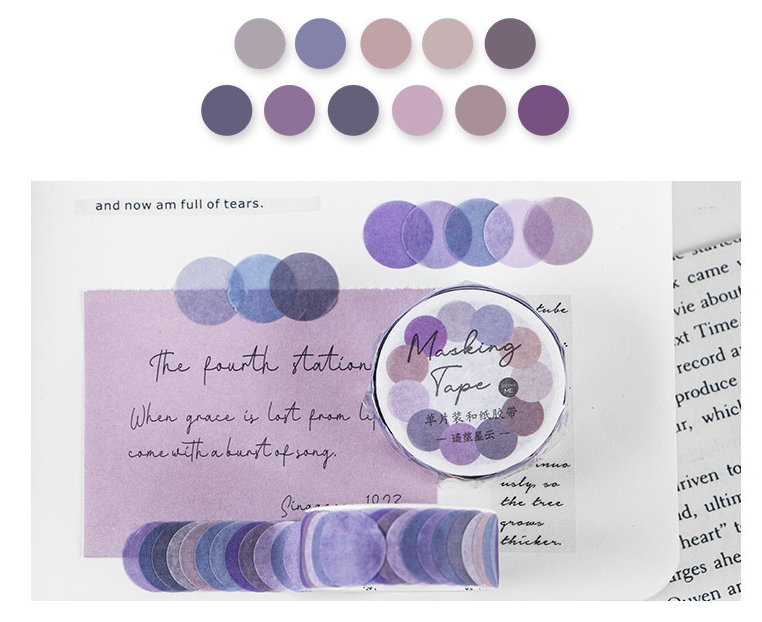 and now am full of tears.
The fourth station
When grace is lost from
come with a burst of song.
Masking
Tape
单片装和纸胶带
— 遥望星云 —
tube
usly, so
the tree
grows
thicker.
came
vie about
xt Time
record a
produce
ur, which
driven to
nd, ultim
heart" t
rges ahe
Ouyen an